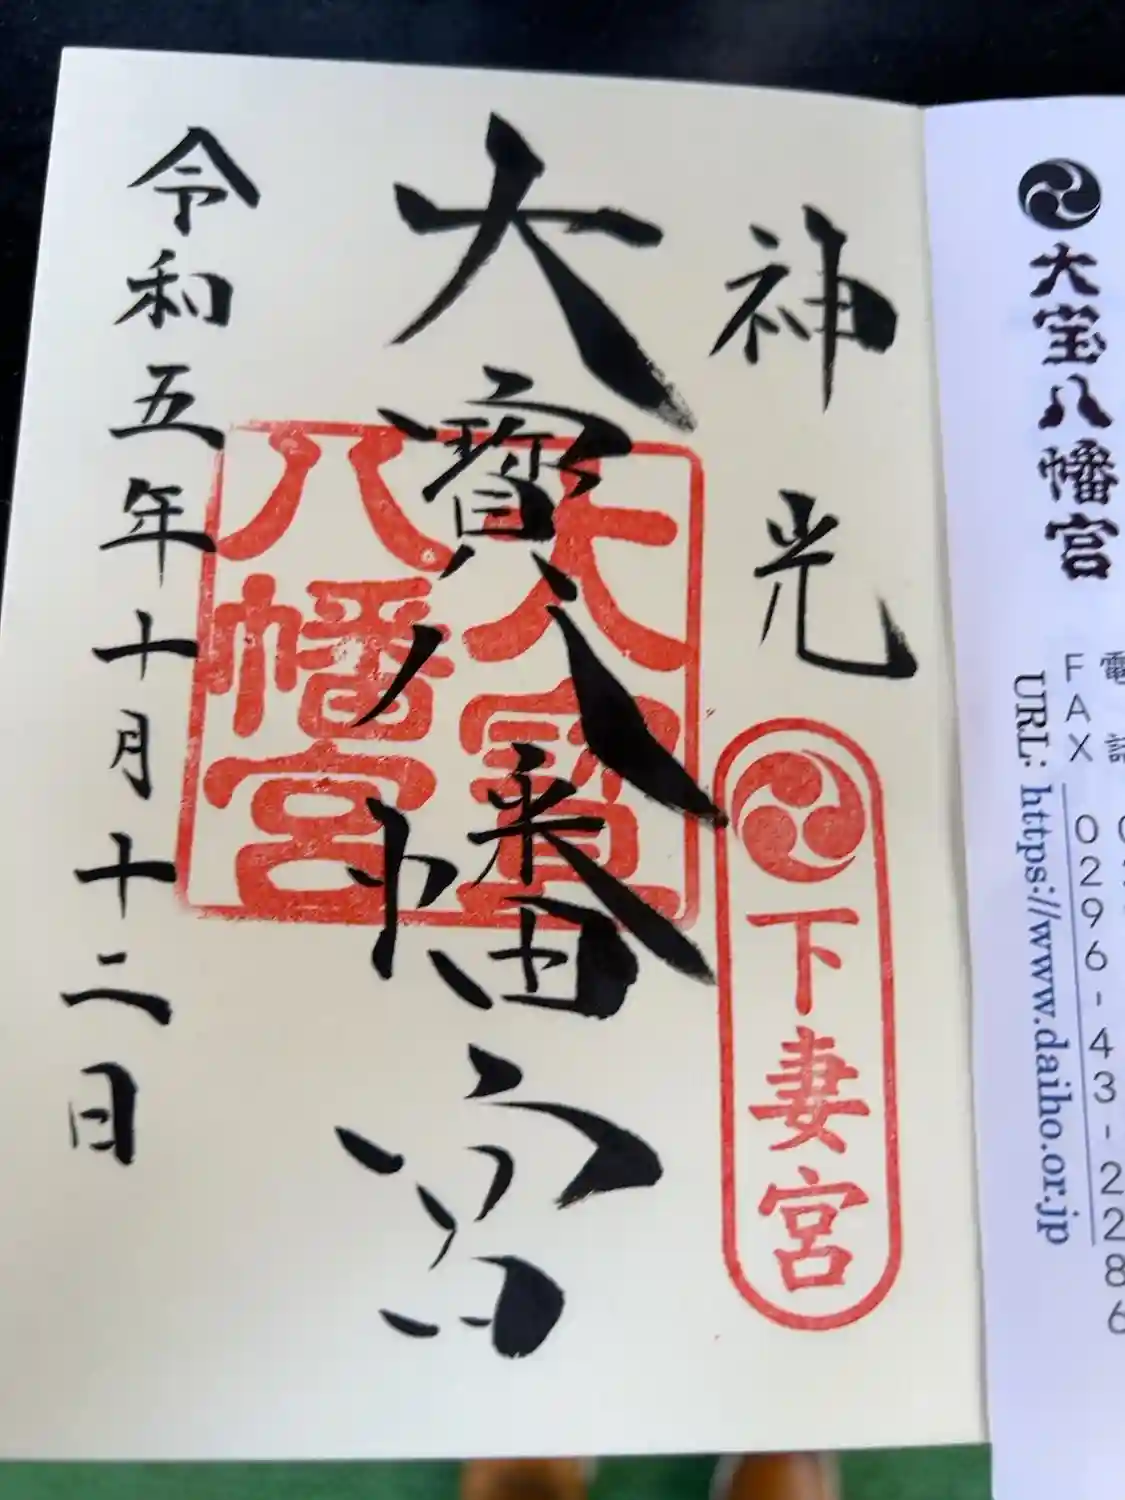 大宝八幡宮
電話
FAX 0296-43-2286
URL: https://www.daiho.or.jp
神光
下妻宮
大寳八幡宮
大寳
八幡宮
令和五年十月十二日